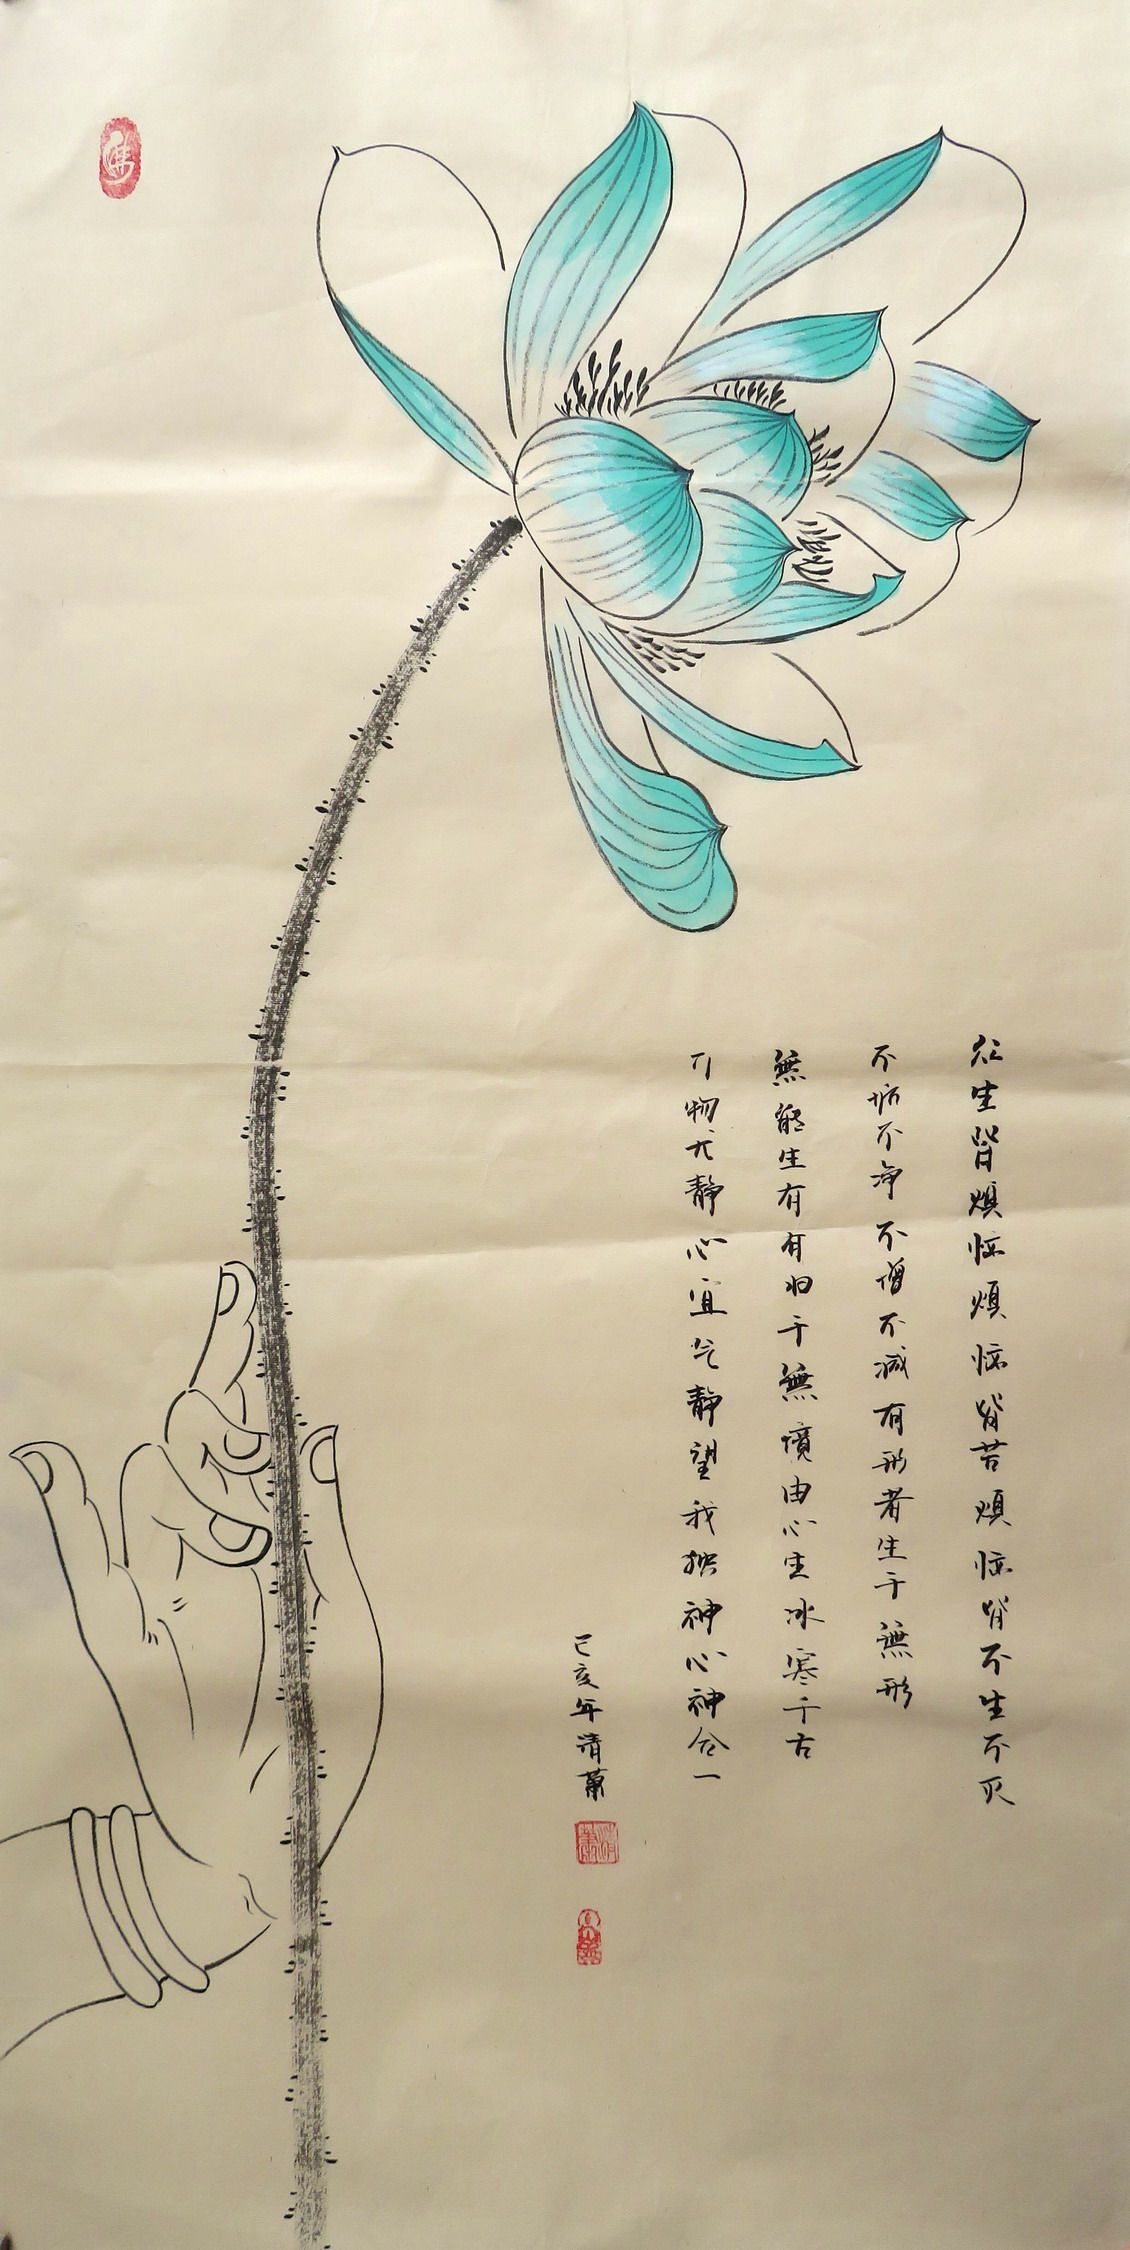 众生皆烦恼烦恼皆苦烦恼皆不生不灭
不垢不净不增不减有形者生于无形
無能生有有归于無境由心生冰寒千古
万物尤静心宜气静望我独神心神合一
己亥年清萧
佛